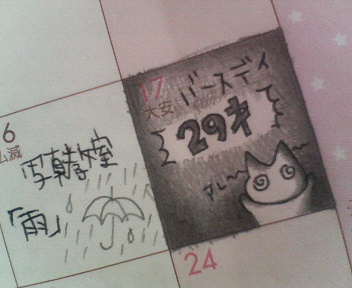 17
大安
バースデイ
29才
ガーン
6
仏滅
写真教室
「雨」
24